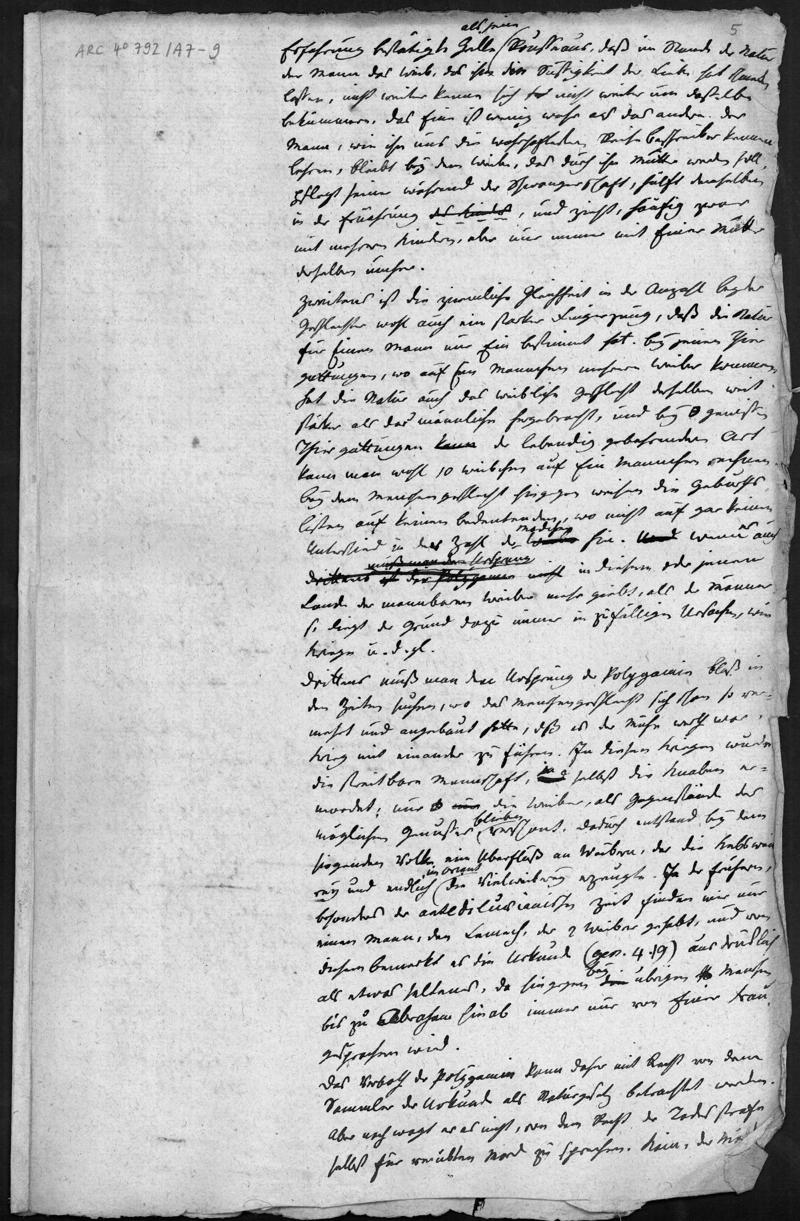 5
ARC 4° 792/A7-9
als jene
Erfahrung bestätigte Rousseaus, daß im Stande der Natur
der Mann das Weib, das ihm die Süßigkeit der Liebe hat
lassen, nicht weiter kenne, sich nicht weiter um dasselbe
bekümmere, das eine ist wenig wahr als das andere. Der
Mann, wie ihn uns die wahrhaftesten Reise Beschreiber kennen
lehren, bleibt bey dem Weibe, das durch ihn Mutter werden soll,
pflegt seiner während der Schwangerschaft, hilft demselben
in der Ernährung des Kindes, und zieht, häufig zwar
mit mehrern Kindern, aber nur immer mit Einer Mutter
derselben umher.
Zweitens ist die ziemliche Gleichheit in der Anzahl beyder
Geschlechter wohl auch ein starker Fingerzeig, daß die Natur
für Einen Mann nur Ein bestimmt hat. Bey jenen Thier
gattungen, wo auf Ein Mannchen mehrere Weiber kommen
hat die Natur auch das weibliche Geschlecht derselben weit
stärker als das männliche hervorgebracht, und bey gewissen
Thiergattungen der lebendig gebährenden Art
kann man wohl 10 Weibchen auf Ein Mannchen rechnen.
Bey dem Menschengeschlecht hingegen weisen die Geburts
listen auf keinen bedeutenden, wo nicht auf gar keinen
Mädchen
Unterschied in der Zahl der hin. Und wenn es auch
muß man den Ursprung
drittens ist die Polygamie in diesem oder jenem
Lande der mannbaren Weiber mehr giebt, als der Männer
so liegt der Grund dazu immer in zufälligen Ursachen, wie
Kriege u. d. gl.
Drittens muß man den Ursprung der Polygamie bloß in
den Zeiten suchen, wo das Menschengeschlecht sich schon so ver=
mehrt und angebaut hatte, daß es der Mühe werth war,
Krieg mit einander zu führen. In diesen Kriegen wurde
die streitbare Mannschaft, ja selbst die Knaben er=
mordet; nur die Weiber, als Gegenstände des
blieben
möglichen Genußes verschont. Dadurch entstand bey dem
siegenden Volke ein Überfluß an Weibern, der die Kebsweibe
im Orient
rey und endlich die Vielweiberey erzeugte. In der frühern,
besonders der antediluvianischen Zeit finden wir nur
einen Mann, den Lamech, der 2 Weiber gehabt, und von
diesem bemerkt es die Urkunde (gen. 4.19) ausdrücklich
bey
als etwas seltenes, da hingegen übrigen Menschen
bis zu Abraham hinab immer nur von Einer Frau
gesprochen wird.
Das Verboth der Polygamie kann daher mit Recht von dem
Sammler der Urkunde als Naturgesetz betrachtet werden.
Aber noch wagt er es nicht, von dem Recht der Todesstrafe
selbst für verübten Mord zu sprechen. Kain, der